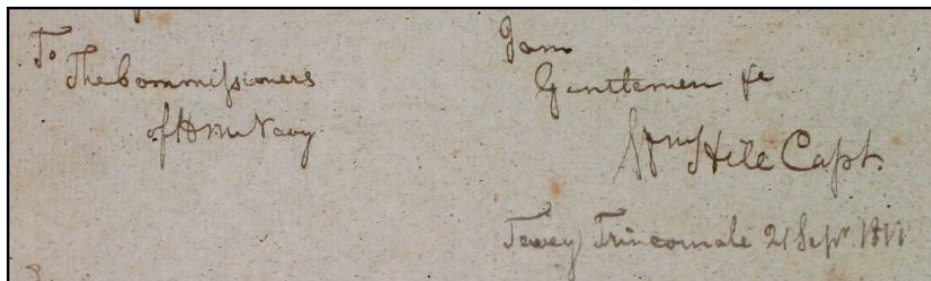 To
The Commissioners
of HM Navy
I am
Gentlemen &c
Hill Capt.
Towey Trincomale 21 Sepr.